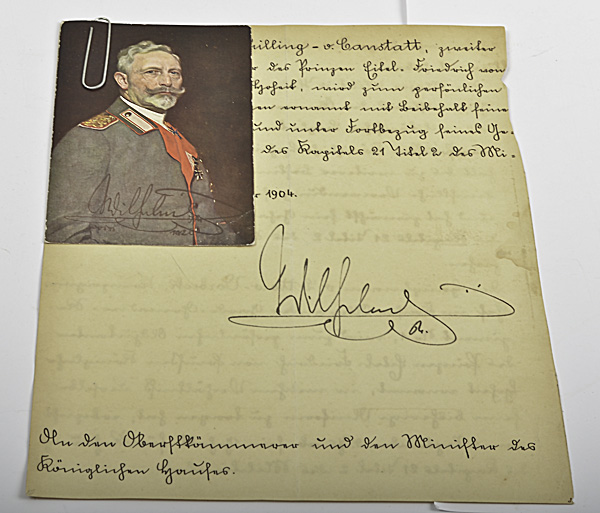 hilling - v. Canstatt, zweiter
r des Prinzen Eitel-Friedrich von
Hoheit, wird zum persönlichen
en ernannt mit Beibehalt seine
und unter Fortbezug seines Ge-
des Kapitels 21 Titel 2 des Mi-
r 1904.
Wilhelm
R.
An den Oberstkämmerer und den Minister des
Königlichen Hauses.
Wilhelm